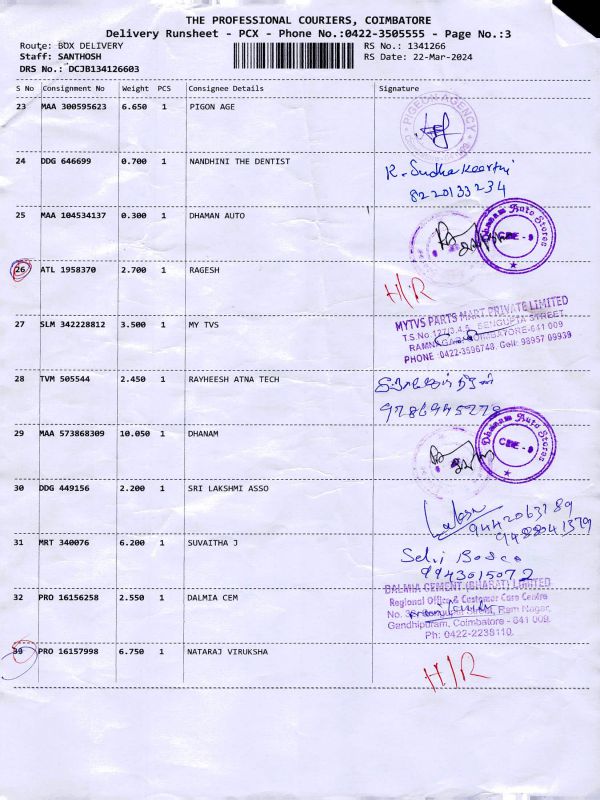 THE PROFESSIONAL COURIERS, COIMBATORE
Delivery Runsheet - PCX - Phone No.:0422-3505555 - Page No.:3
Route: BOX DELIVERY RS No.: 1341266
Staff: SANTHOSH RS Date: 22-Mar-2024
DRS No.: DCJB134126603
S No Consignment No Weight PCS Consignee Details Signature
23 MAA 300595623 6.650 1 PIGON AGE
PIGEON AGENCY
24 DDG 646699 0.700 1 NANDHINI THE DENTIST
R. Sudha Keerthi
8220133234
25 MAA 104534137 0.300 1 DHAMAN AUTO
Dhanam Auto Stores
CBE - 9
26 ATL 1958370 2.700 1 RAGESH
H/R
27 SLM 342228812 3.500 1 MY TVS
MYTVS PARTS MART PRIVATE LIMITED
T.S.No.127/3,4,5, SENGUPTA STREET,
RAMNAGAR, COIMBATORE-641 009
PHONE :0422-3596748, Cell: 98957 09939
28 TVM 505544 2.450 1 RAYHEESH ATNA TECH
29 MAA 573868309 10.050 1 DHANAM
Dhanam Auto Stores
CBE - 9
30 DDG 449156 2.200 1 SRI LAKSHMI ASSO
9442063189
9488041379
31 MRT 340076 6.200 1 SUVAITHA J
Selvi Bosco
9943015072
32 PRO 16156258 2.550 1 DALMIA CEM
DALMIA CEMENT (BHARAT) LIMITED
Regional Office & Customer Care Centre
No. Sengupta Street, Ram Nagar,
Gandhipuram, Coimbatore - 641 009.
Ph: 0422-2238110.
PRO 16157998 6.750 1 NATARAJ VIRUKSHA
H/R